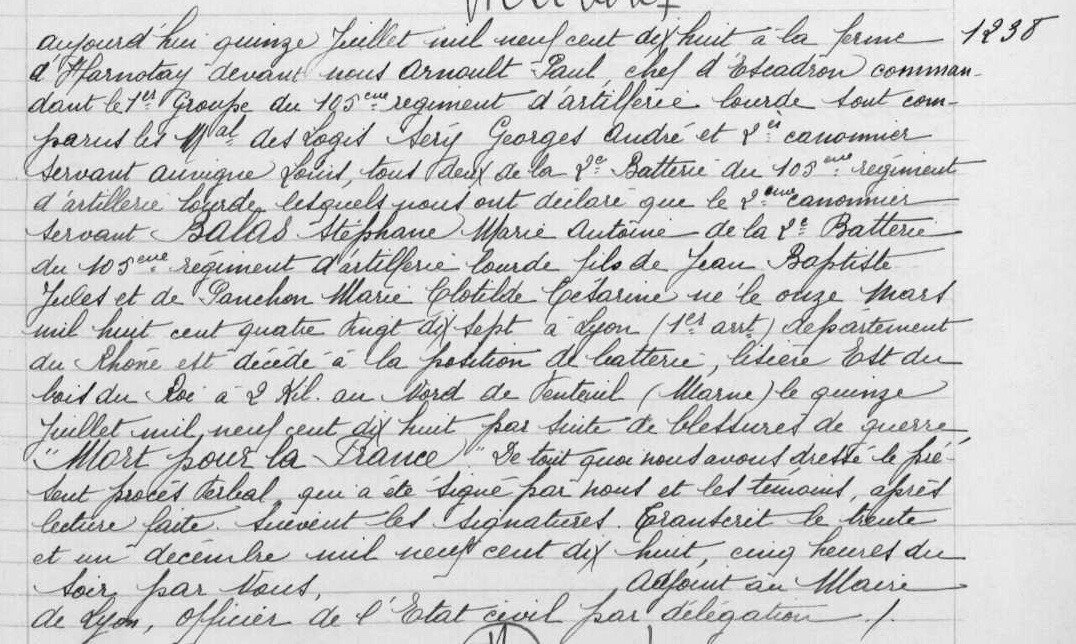 aujourd'hui quinze Juillet mil neuf cent dix huit à la ferme 1238
d'Harnotay devant nous Arnoult Paul, chef d'Escadron comman-
dant le 1er Groupe du 105eme regiment d'artillerie lourde sont com-
parus les Mal des Logis Sery Georges André et 2e canonnier
servant Auvigne Louis, tous deux de la 2e Batterie du 105eme régiment
d'artillerie lourde lesquels nous ont déclaré que le 2eme canonnier
servant BALAS Stéphane Marie Antoine de la 2e Batterie
du 105eme regiment d'artillerie lourde fils de Jean Baptiste
Jules et de Panchon Marie Clotilde Césarine né le onze Mars
mil huit cent quatre vingt dix sept à Lyon (1er arrt) département
du Rhône est décédé à la position de batterie, lisière Est du
bois du Roi à 2 Kil. au Nord de Venteuil (Marne) le quinze
Juillet mil neuf cent dix huit par suite de blessures de guerre,
"Mort pour la France" De tout quoi nous avons dressé le pré-
sent procès verbal, qui a été signé par nous et les témoins, après
lecture faite. Suivent les signatures. Transcrit le trente
et un décembre mil neuf cent dix huit, cinq heures du
soir par Nous, Adjoint au Maire
de Lyon, Officier de l'Etat civil par délégation ./.